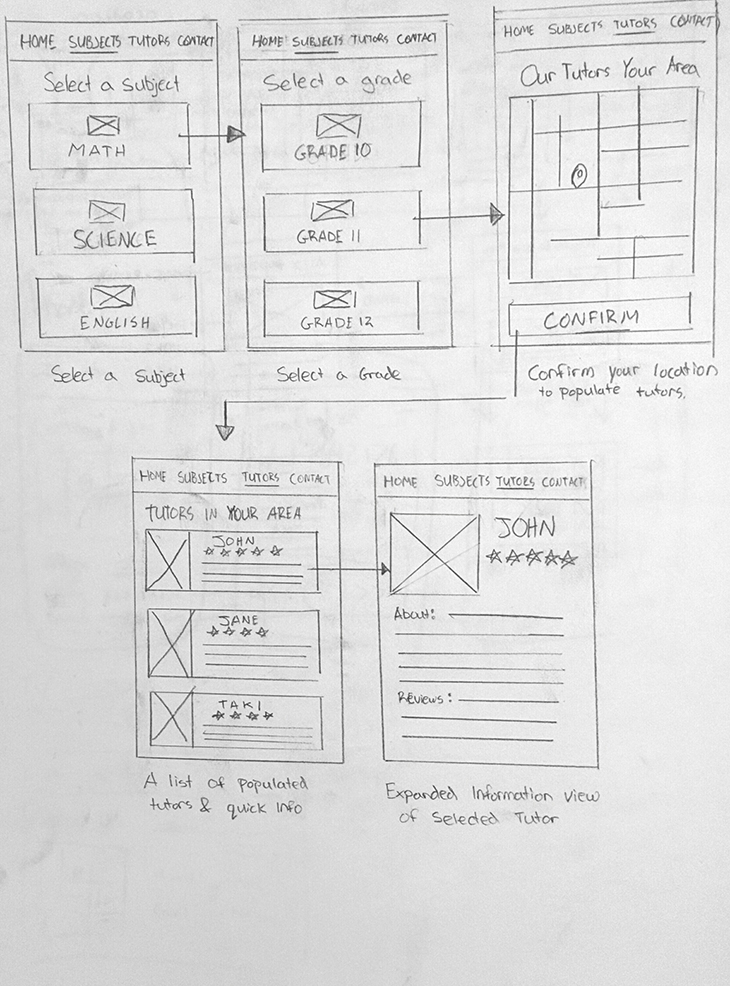 HOME SUBJECTS TUTORS CONTACT
Select a Subject
MATH
SCIENCE
ENGLISH
Select a Subject
HOME SUBJECTS TUTORS CONTACT
Select a grade
GRADE 10
GRADE 11
GRADE 12
Select a Grade
HOME SUBJECTS TUTORS CONTACT
Our Tutors Your Area
CONFIRM
Confirm your location
to populate tutors.
HOME SUBJECTS TUTORS CONTACT
TUTORS IN YOUR AREA
JOHN
JANE
TAKI
A list of populated
tutors & quick info
HOME SUBJECTS TUTORS CONTACT
JOHN
About:
Reviews:
Expanded Information view
of Selected Tutor